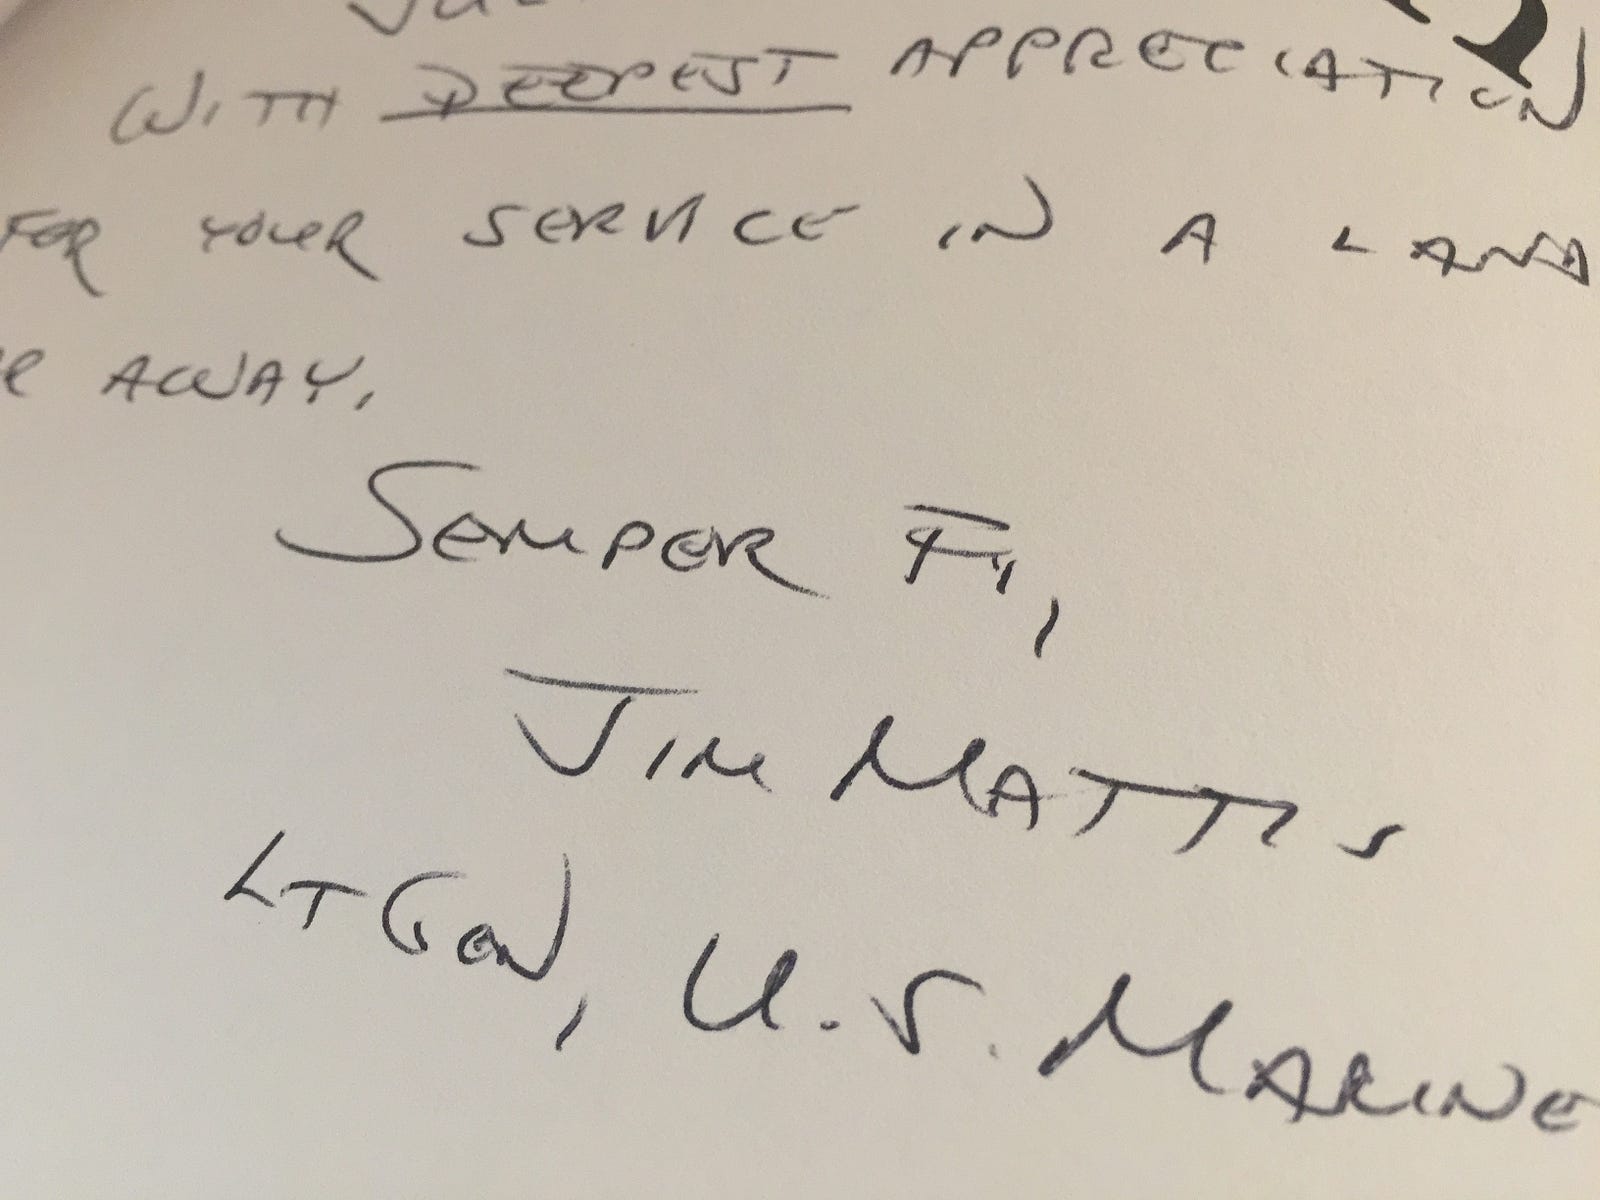 WITH DEEPEST APPRECIATION
FOR YOUR SERVICE IN A LAND
AWAY.
SEMPER FI,
JIM MATTIS
LTGEN, U.S. MARINE